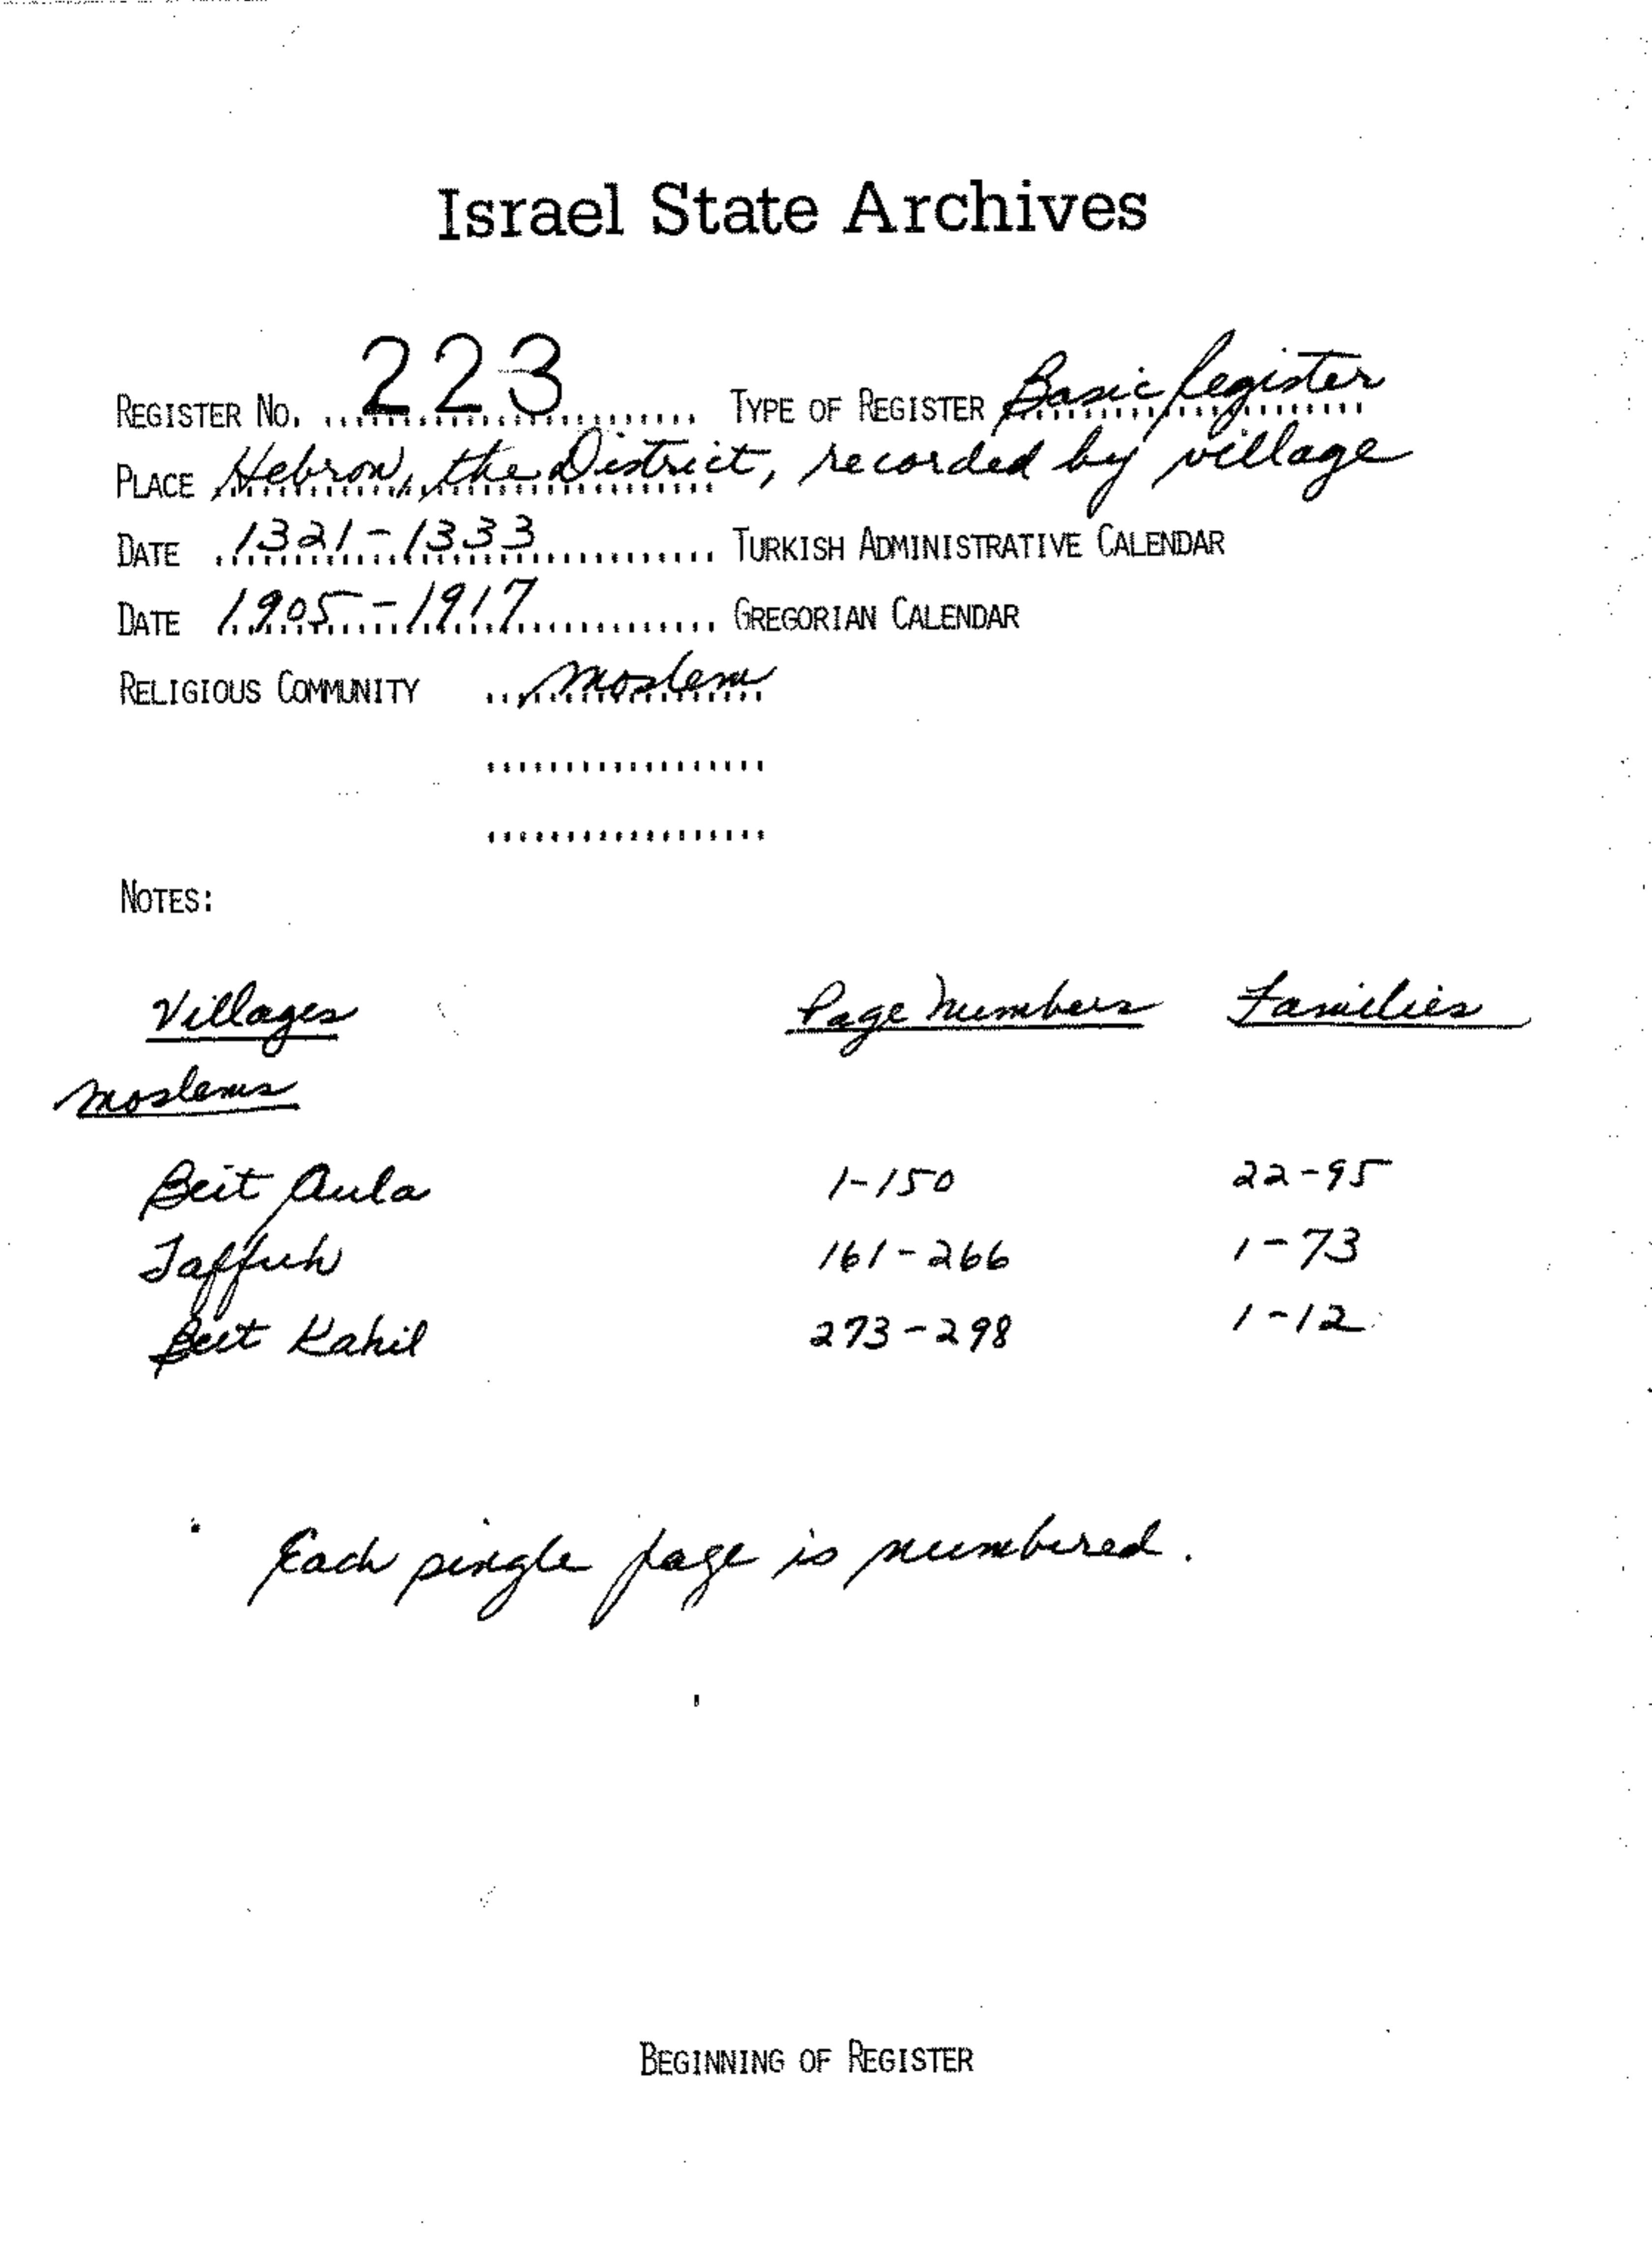 Israel State Archives
REGISTER NO. 223 TYPE OF REGISTER Basic Register
PLACE Hebron, the District, recorded by village
DATE 1321-1333 TURKISH ADMINISTRATIVE CALENDAR
DATE 1905-1917 GREGORIAN CALENDAR
RELIGIOUS COMMUNITY Moslem
NOTES:
Villages Page Numbers Families
Moslems
Beit Aula 1-150 22-95
Taffuh 161-266 1-73
Beit Kahil 273-298 1-12
Each single page is numbered.
BEGINNING OF REGISTER